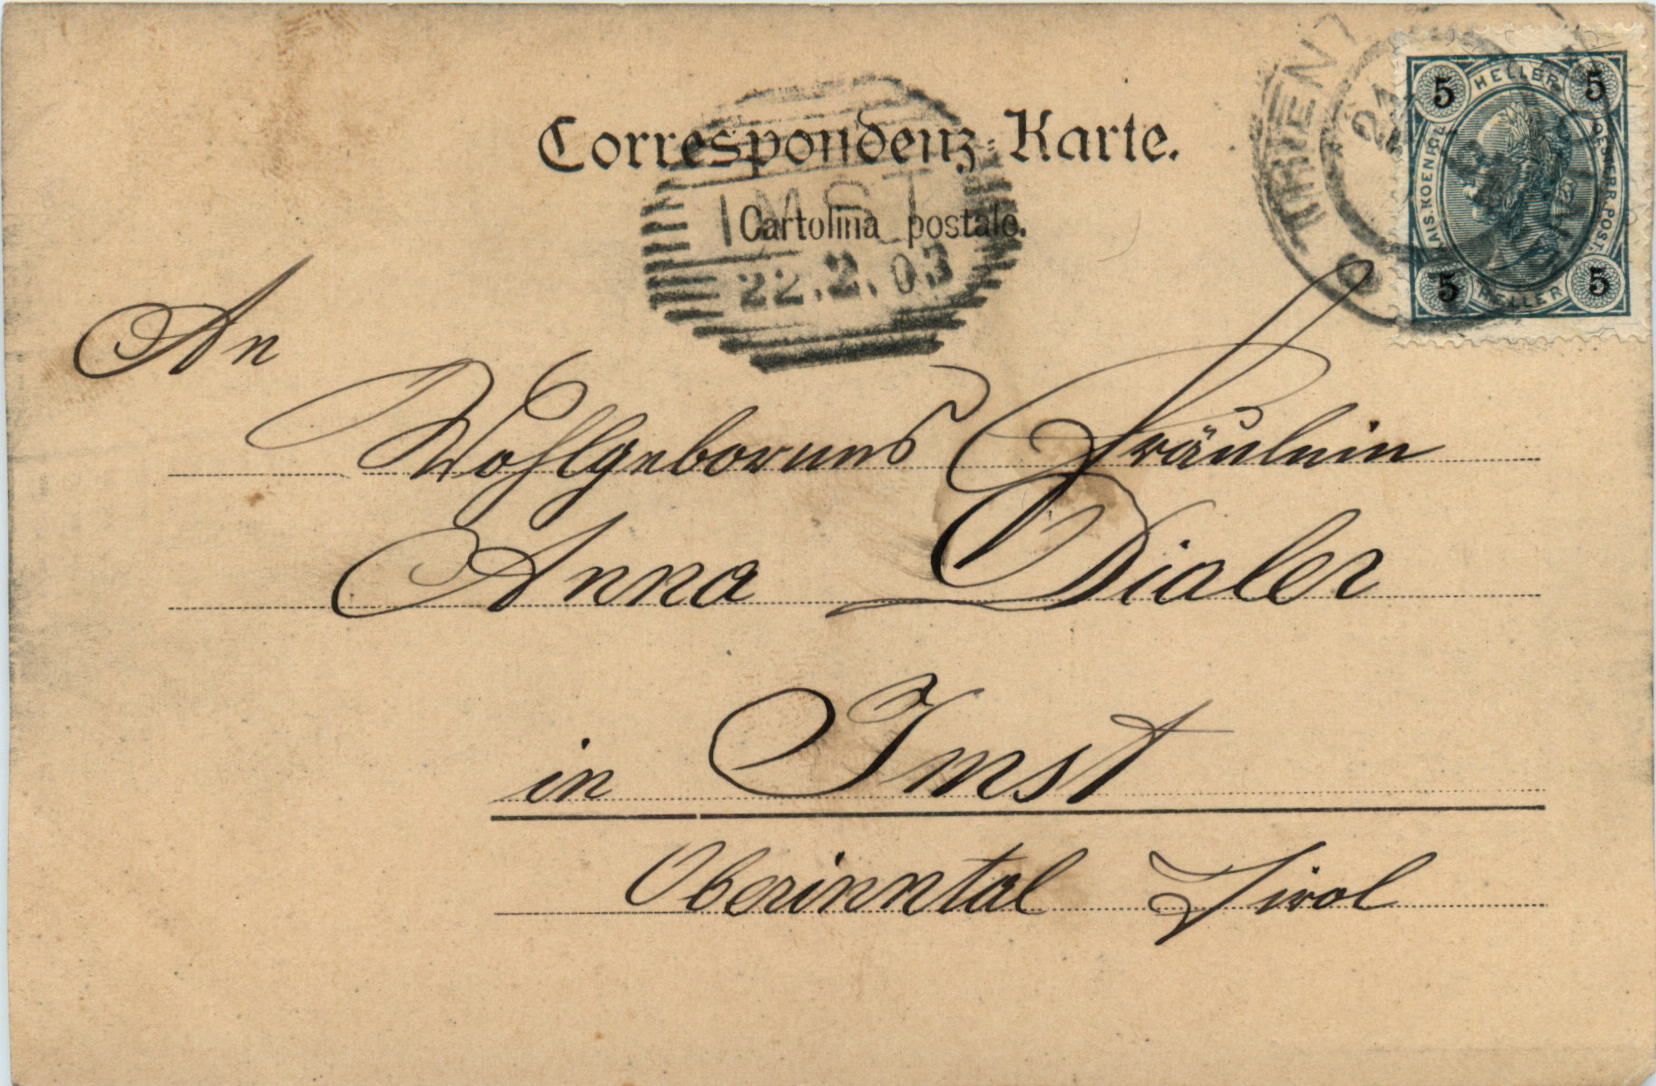 Correspondenz-Karte.
Cartolina postale.
IMST
22.2.03
TRIENT
5 HELLER 5
KAIS.KOENIGL. OESTERR.POST.
5 HELLER 5
An
Wohlgeborenes Fräulein
Anna Dialer
in Imst
Oberinntal Tirol